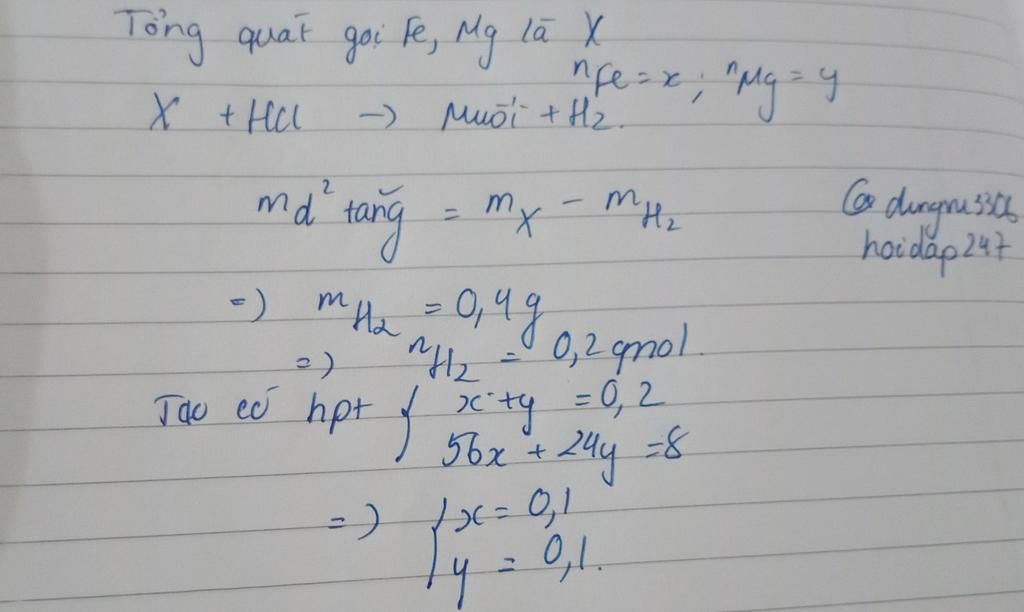 Tổng quát gọi Fe, Mg là X
nFe = x ; nMg = y
X + HCl → Muối + H2.
md² tăng = mX - mH2
@
hoidap247
=) mH2 = 0,4g
=) nH2 = 0,2 mol.
có hpt { x + y = 0,2
56x + 24y = 8
=) { x = 0,1
y = 0,1.